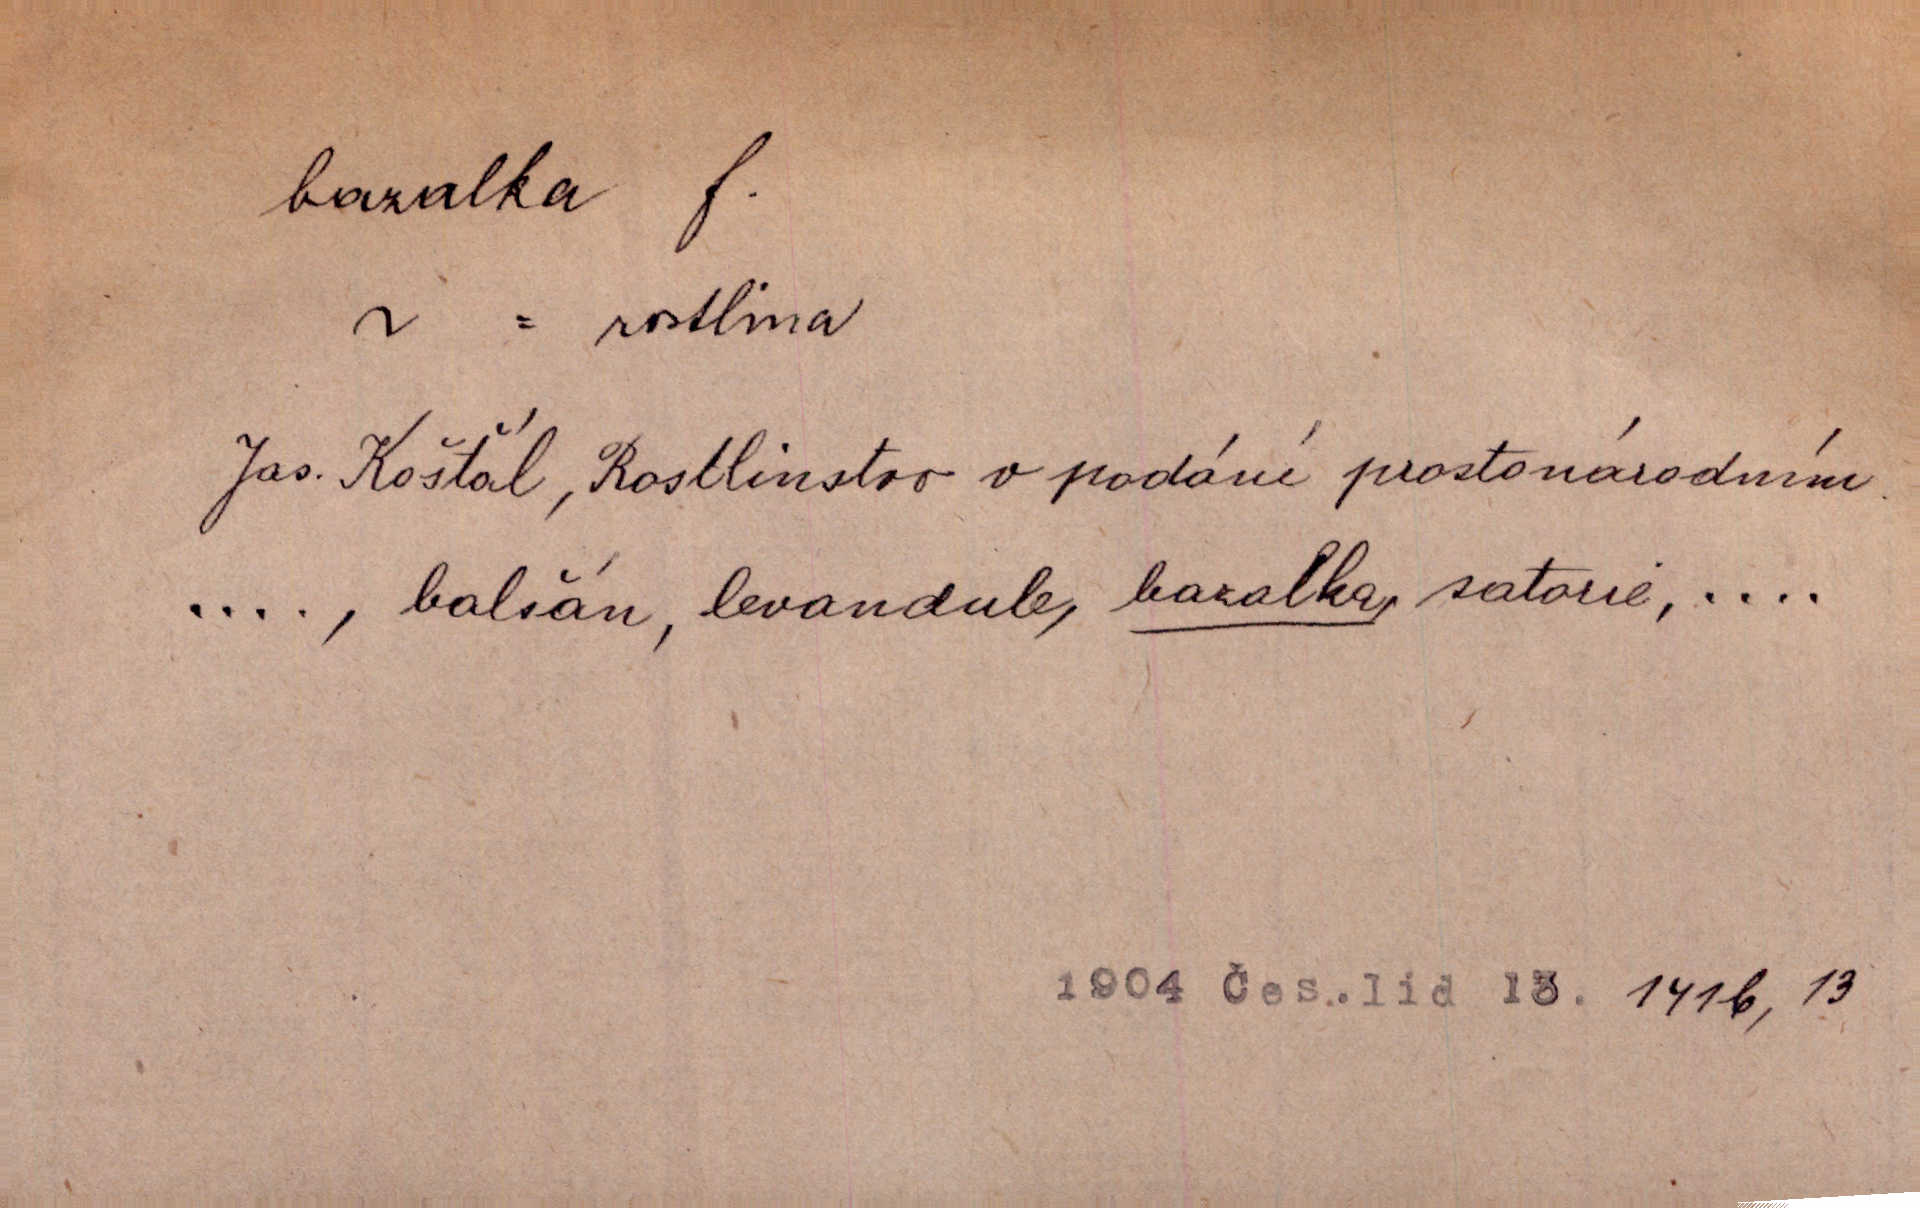 bazalka f.
~ = rostlina
Jos. Košťál, Rostlinstvo v podání prostonárodním.
...., balšán, levandule, bazalka, satorie, ....
1904 Čes.lid 13. 141b, 13